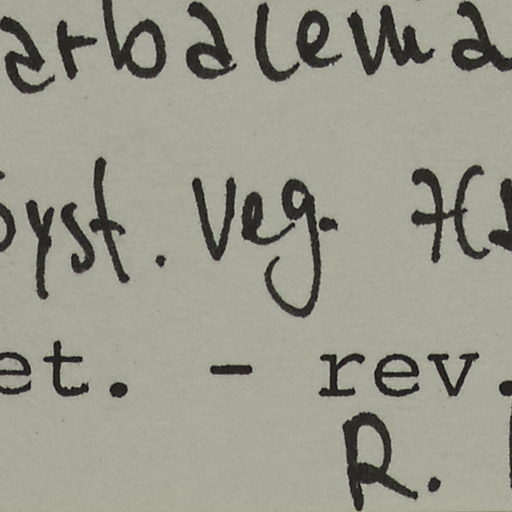 arbalema
Syst. Veg. 7(1
et. - rev.
R.